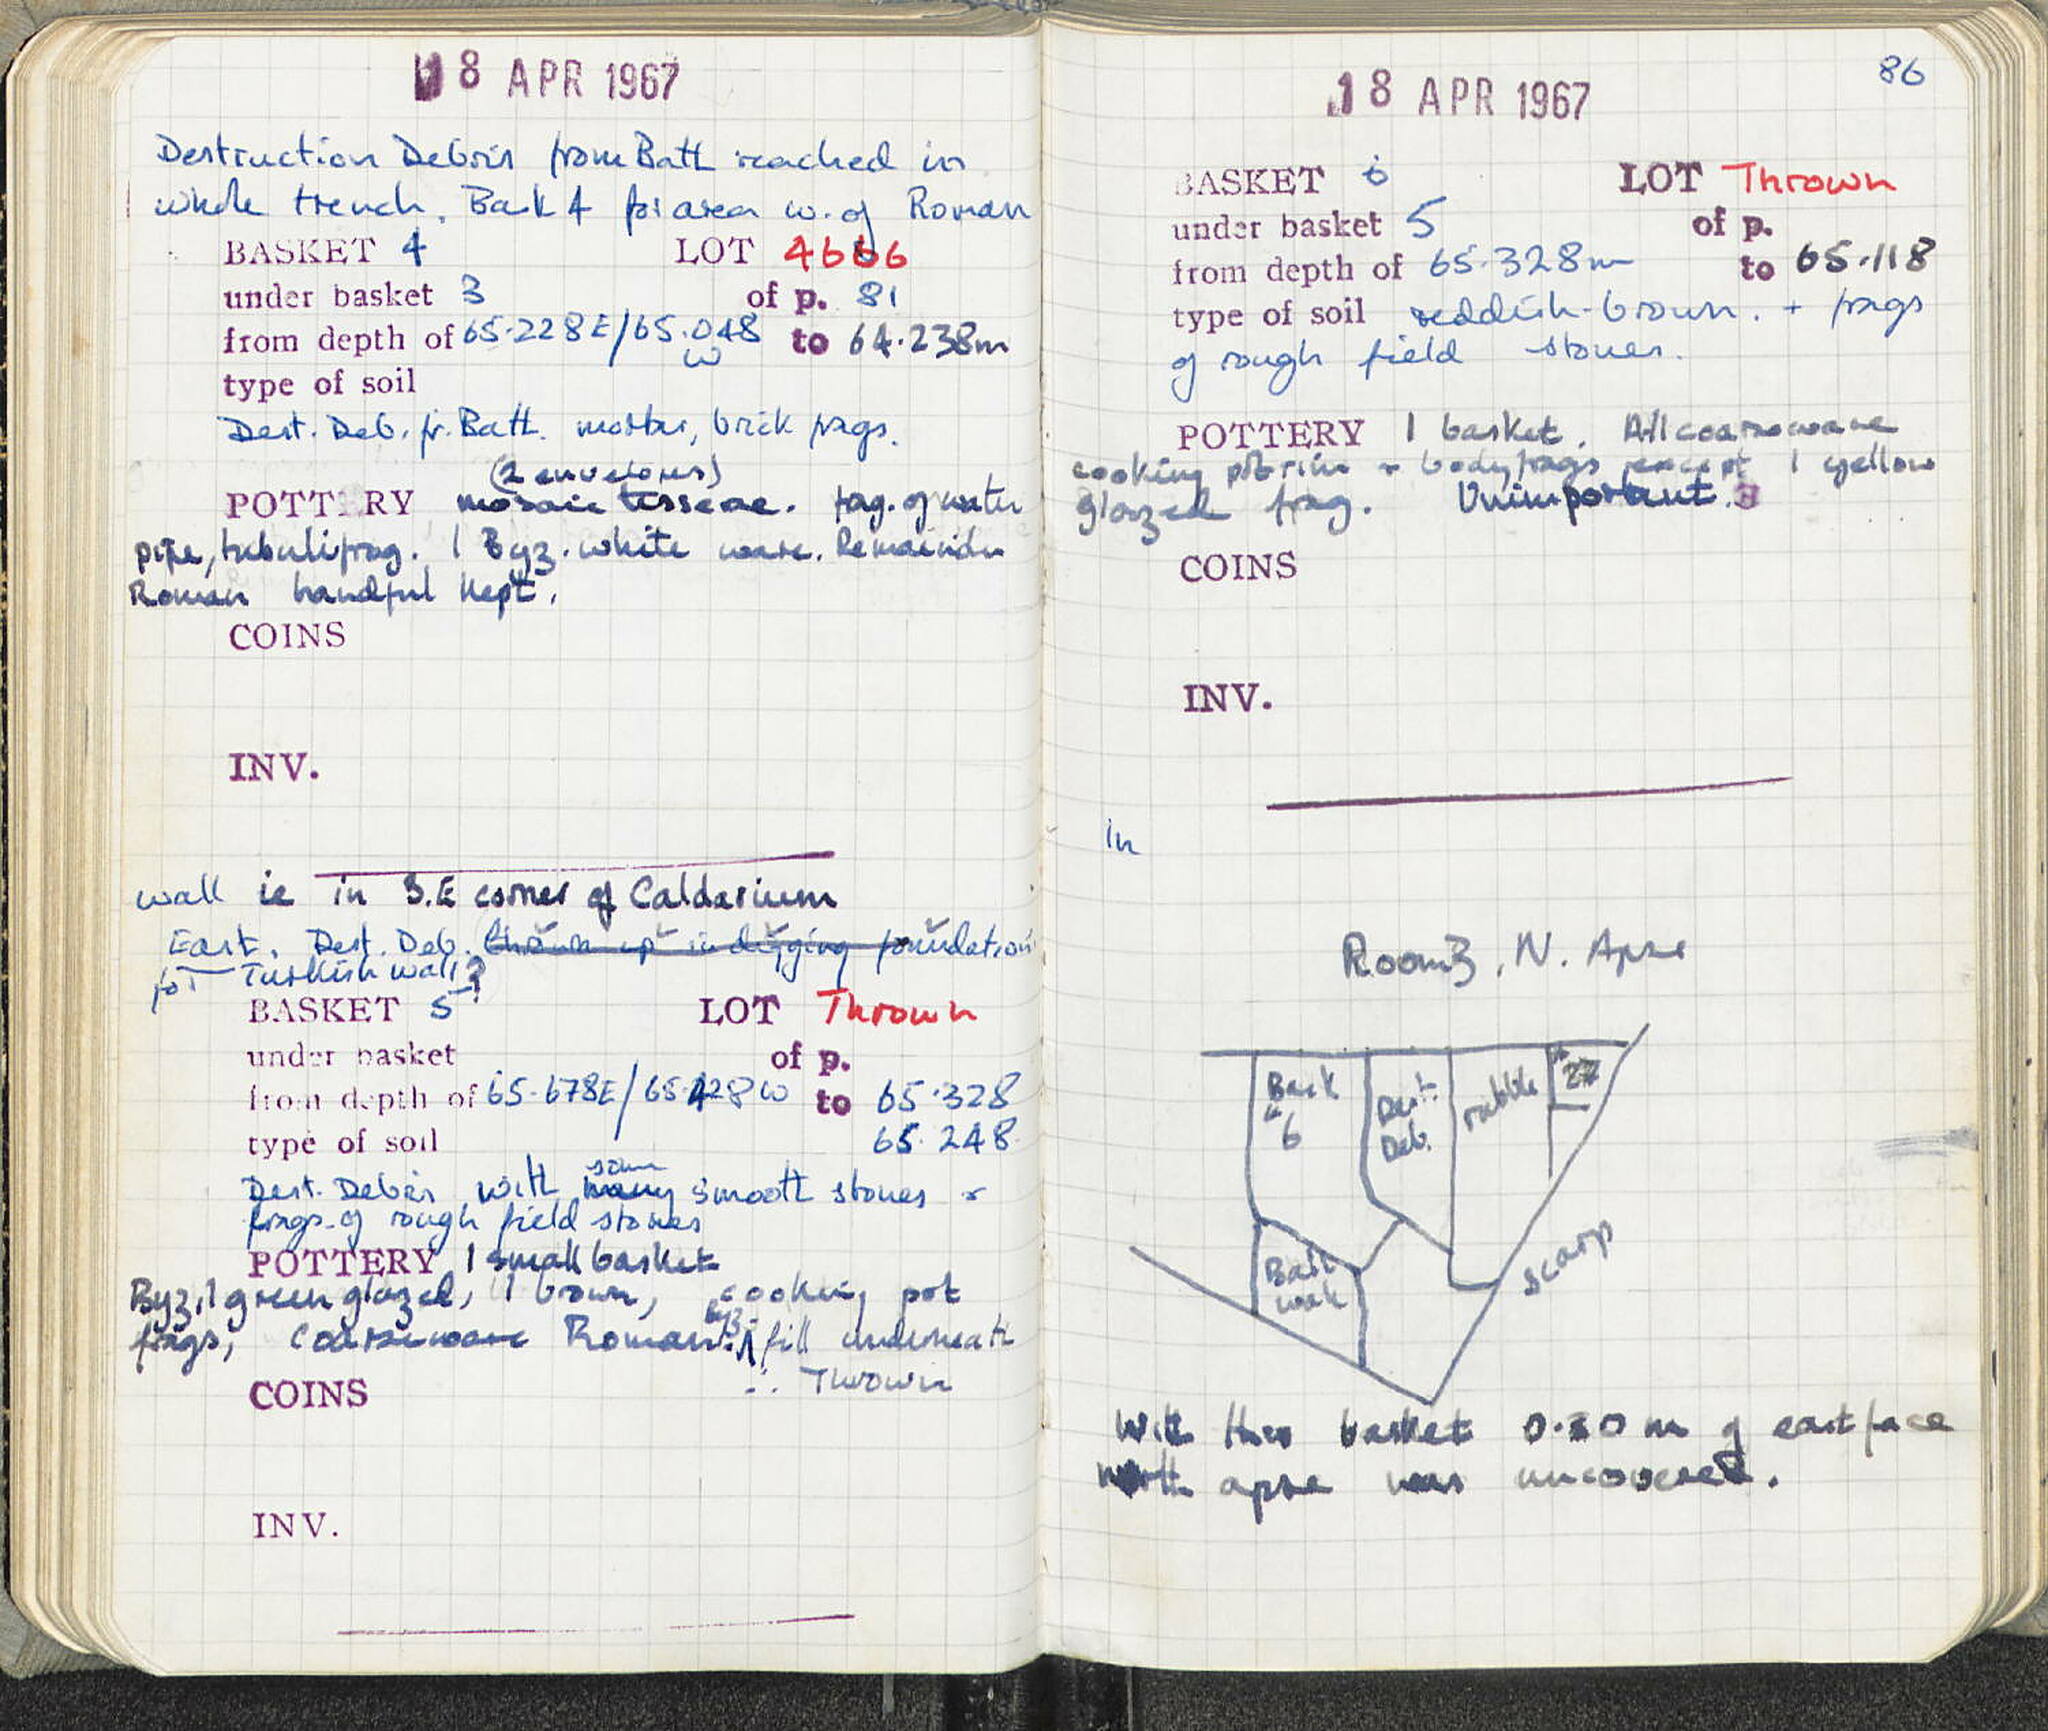 18 APR 1967
Destruction Debris from Bath reached in
whole trench. Bask 4 for area w. of Roman
BASKET 4 LOT 4666
under basket 3 of p. 81
from depth of 65.228E/65.048 to 64.238m
W
type of soil
Dest. Deb. fr. Bath. mortar, brick frags.
(2 envelopes)
POTTERY mosaic tesserae. frag. of water
pipe, tubuli frag. 1 Byz. white ware. Remainder
Roman handful kept.
COINS
INV.
wall ie in S.E corner of Caldarium
East. Dest. Deb. thrown up in digging foundations
for Turkish wall?
BASKET 5 LOT Thrown
under basket of p.
from depth of 65.678E/65.428W to 65.328
type of soil 65.248
some
Dest. Debris with many smooth stones +
frags. of rough field stones
POTTERY 1 small basket
Byz, 1 green glazed, 1 brown, cooking pot
byz.
frags, coarseware Roman. fill underneath
∴ Thrown
COINS
INV.
86
18 APR 1967
BASKET 6 LOT Thrown
under basket 5 of p.
from depth of 65.328m to 65.118
type of soil reddish-brown. + frags
of rough field stones.
POTTERY 1 basket. All coarseware
cooking pot rim + body frags except 1 yellow
glazed frag. Unimportant.
COINS
INV.
in
Room 3, N. Apse
Bask
6
Dest.
Deb.
rubble
27
Bask
scarp
With this basket of east face
north apse was uncovered.